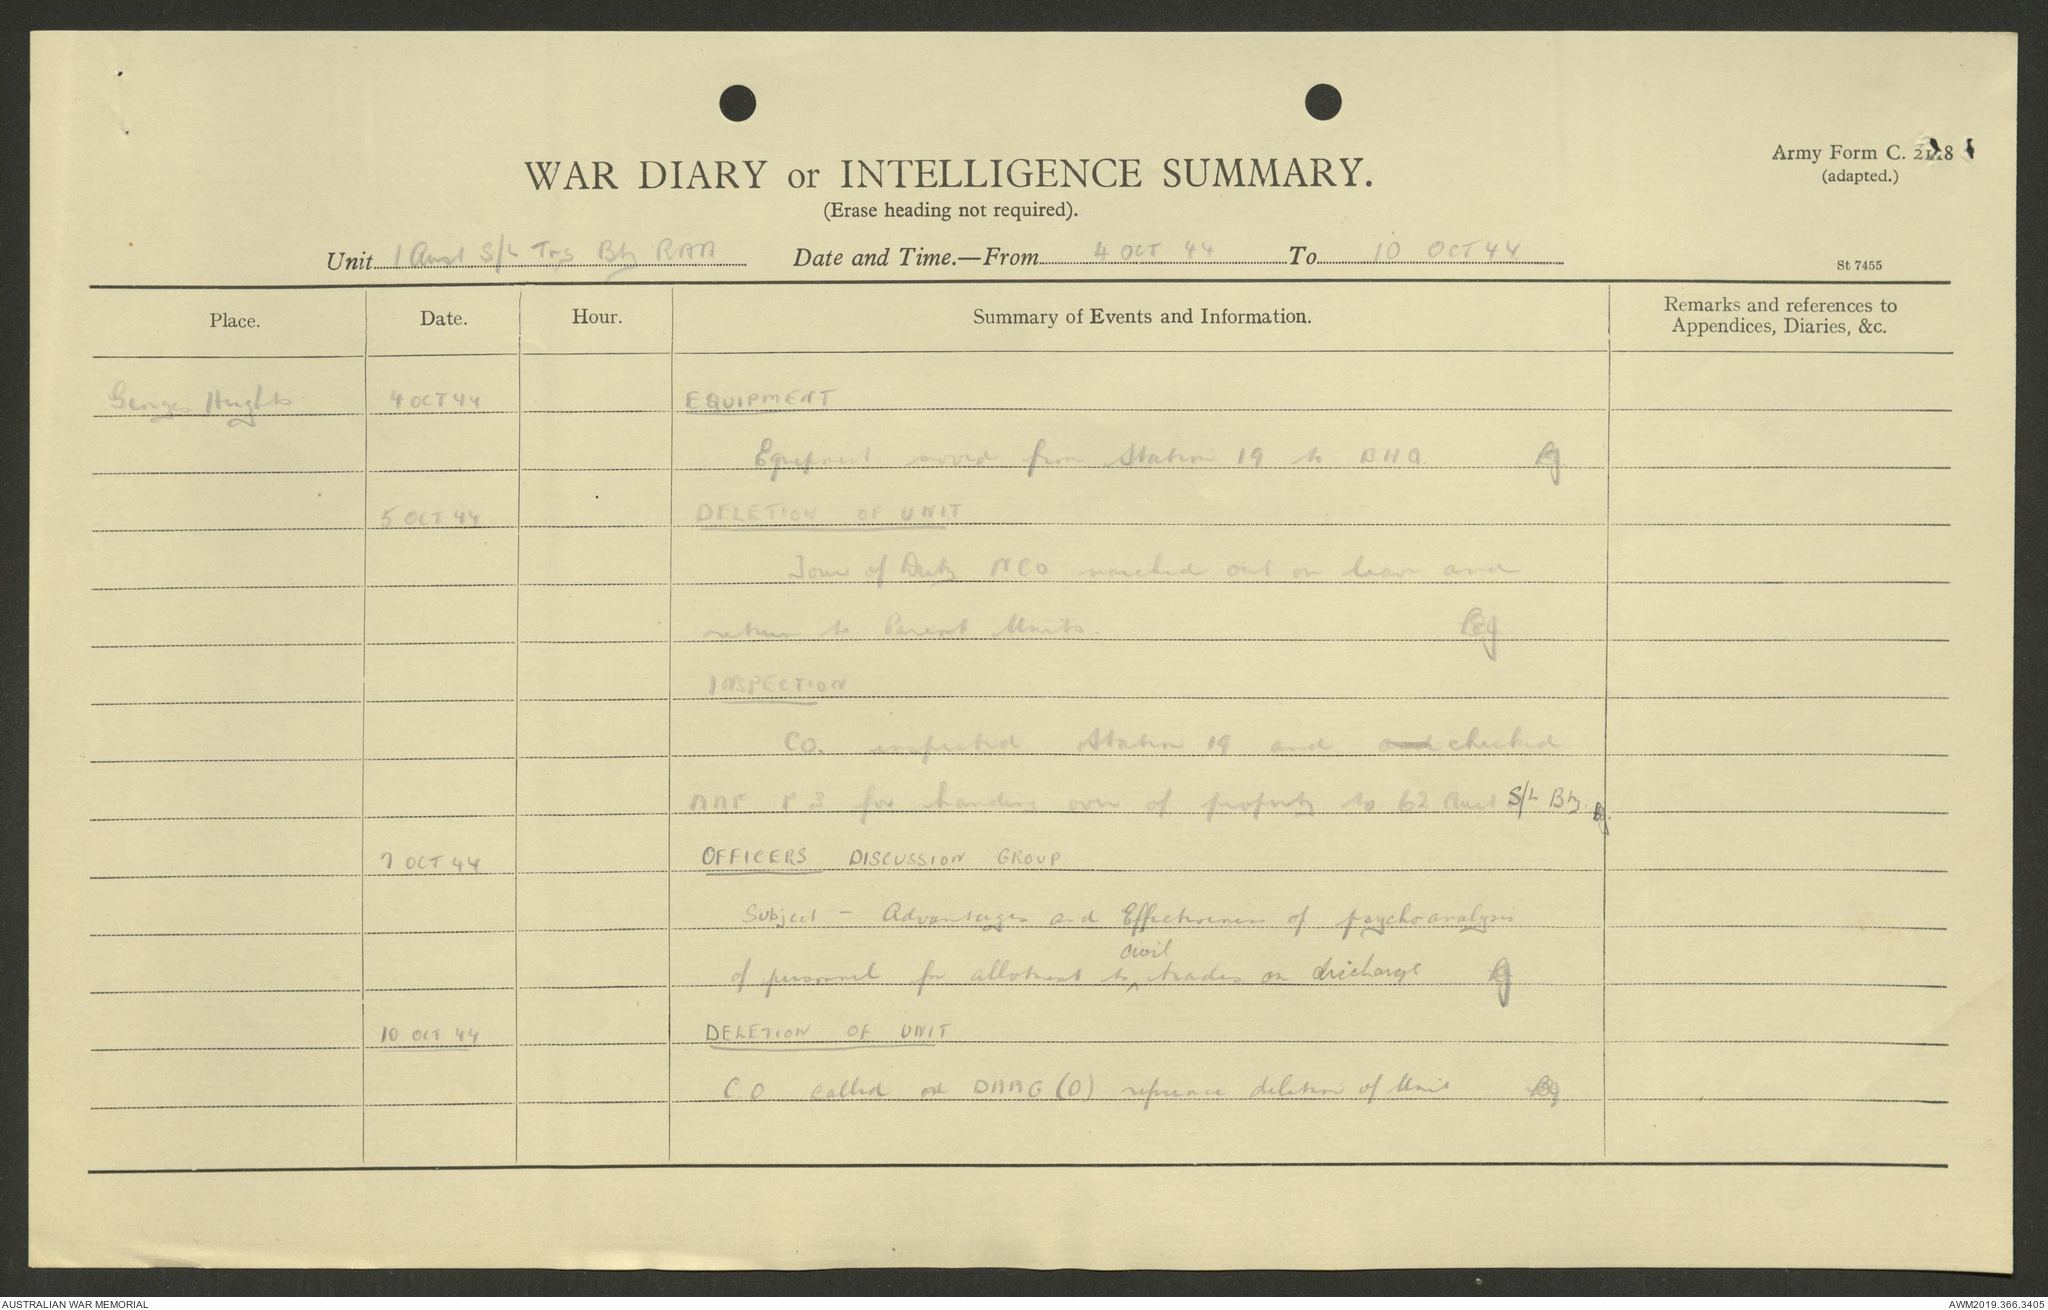 Army Form C. 2118
(adapted.)
WAR DIARY or INTELLIGENCE SUMMARY.
(Erase heading not required).
Unit 1 Aust S/L Trg Bty RAA Date and Time.—From 4 OCT 44 To 10 OCT 44
St 7455
Place. Date. Hour. Summary of Events and Information. Remarks and references to
Appendices, Diaries, &c.
Georges Heights 4 OCT 44 EQUIPMENT
Equipment moved from Station 19 to BHQ.
5 OCT 44 DELETION OF UNIT
Tour of Duty NCO marched out on leave and
return to Parent Units.
INSPECTION
CO. inspected Station 19 and and checked
AAF P 3 for handing over of property to 62 Aust S/L Bty.
7 OCT 44 OFFICERS DISCUSSION GROUP
Subject - Advantages and Effectiveness of psychoanalysis
of personnel for allotment to civil trades on discharge
10 OCT 44 DELETION OF UNIT
C.O called on DAAG (O) reference deletion of Unit
AUSTRALIAN WAR MEMORIAL AWM2019.366.3405